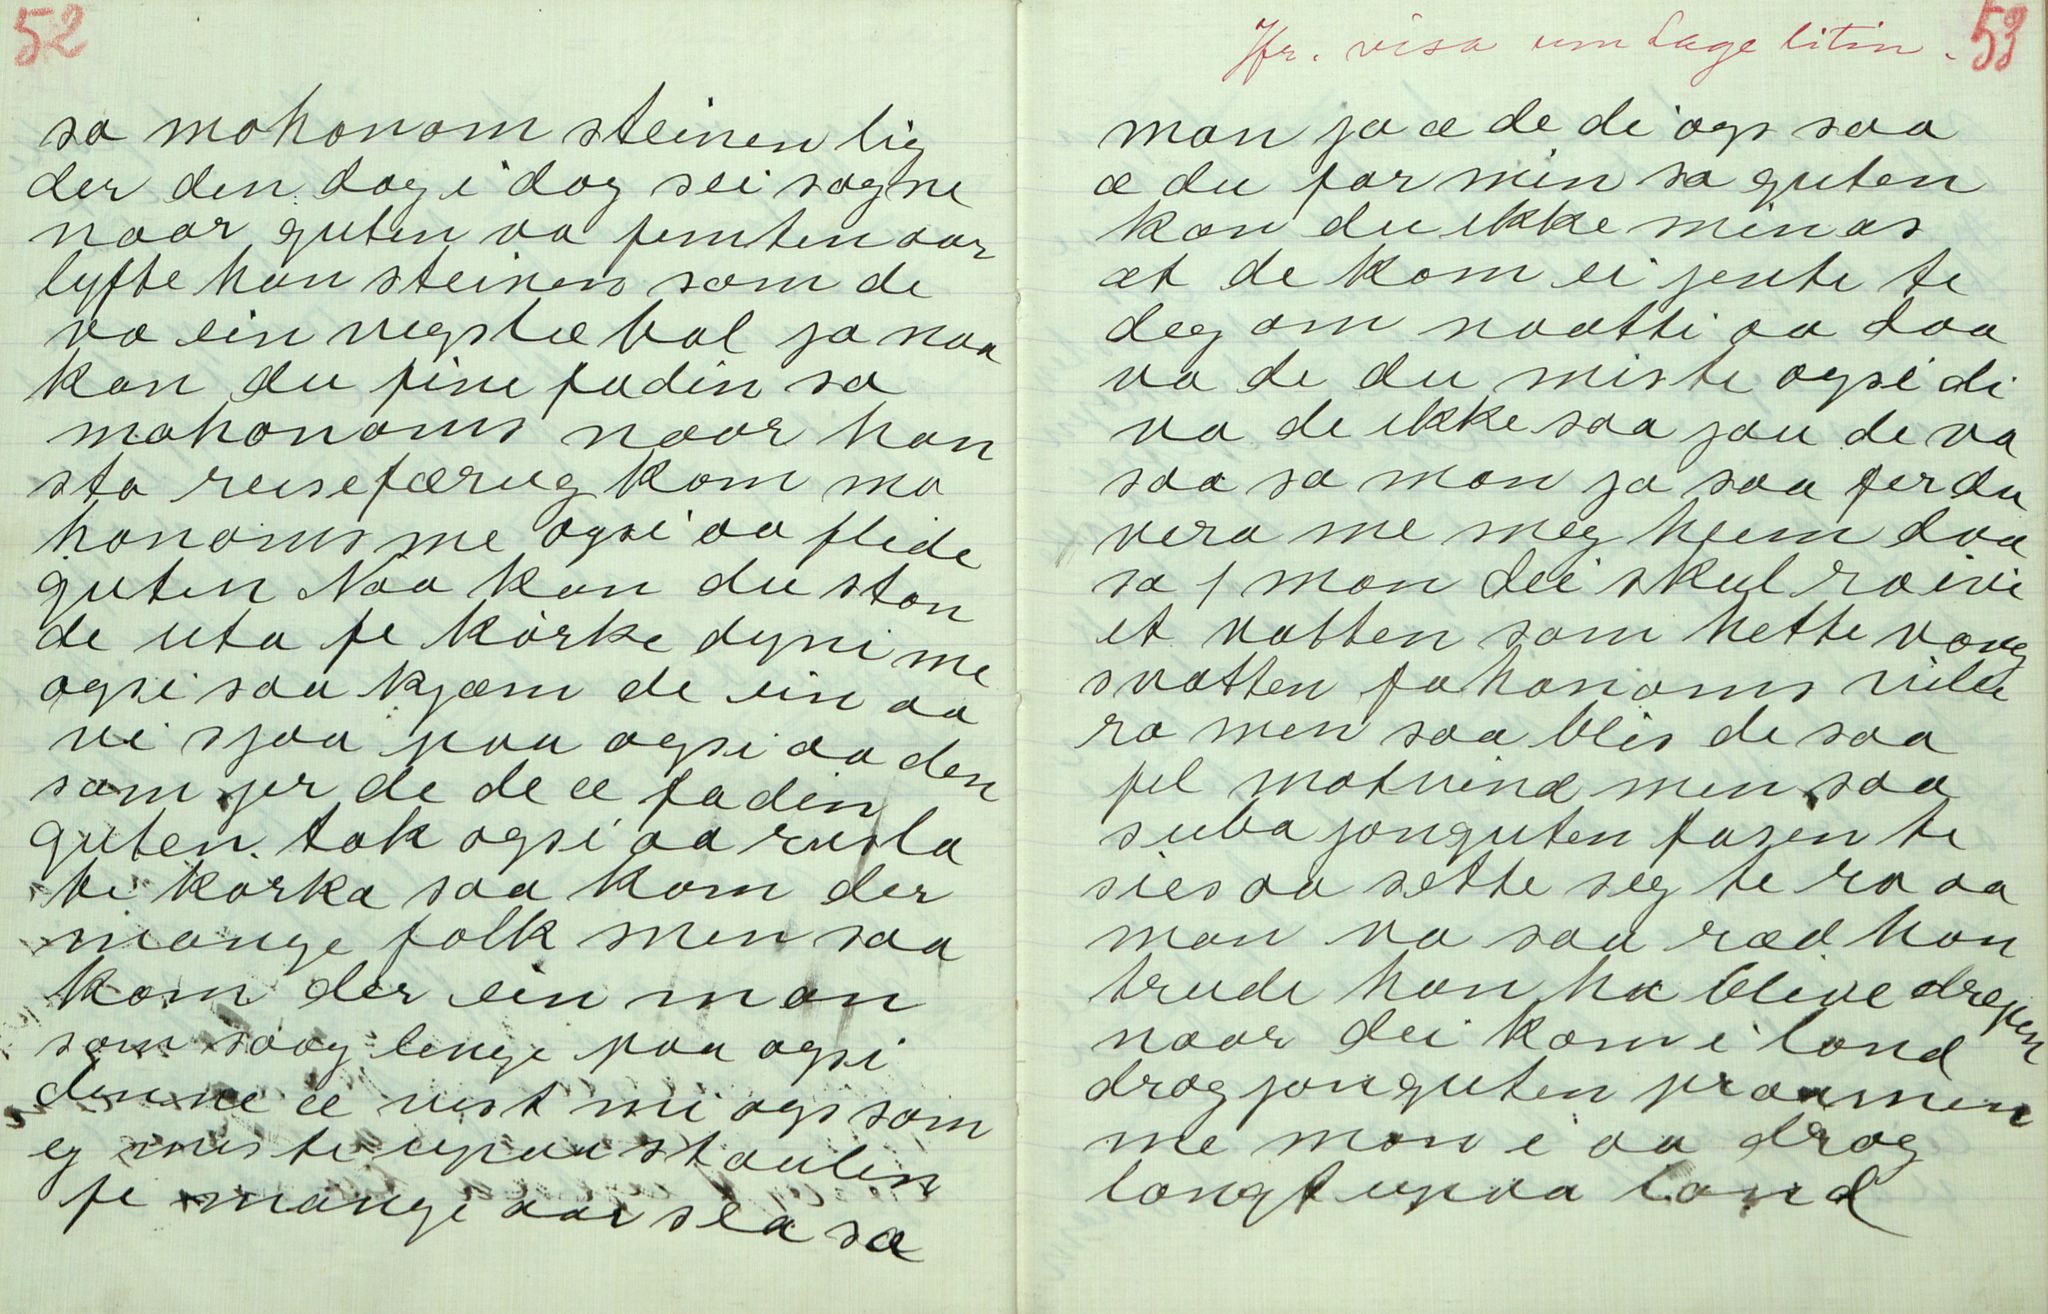 52
sa mohonom steinen lig
der den dag i dag sei sogne
naar guten va femten aar
lyfte han steinen som de
va ein vegstæ bal ja naa
kan du fine fadin sa
mohonoms naar han
sto reisefærug kom mo
honoms me øgsi aa flide
guten Naa kan du ston
de uta fe kørke dyni me
øgsi saa kjæm de ein aa
vi sjaa paa øgsi aa den
som jer de de æ fadin
guten tok øgsi aa rusla
te kørka saa kom der
mange folk men saa
kom der ein man
som saag lenge paa øgsi
denne æ vist mi øgs som
eg miste uppaa staulen
fe mange aar sea sa
Jfr. visa um Lage litin. 53
man ja æ de di øgs saa
æ du far min sa guten
kan du ikke minas
at de kom ei jente te
deg om naatti aa daa
va de du miste øgsi di
va de ikke saa jau de va
saa sa man ja saa fer du
vera me meg heim daa
sa man Dei skul ro ivi
et vatten som hette vang
svatten fa honoms vilde
ro men saa bleis de saa
fel motvind men saa
suba jonguten fasen te
sies aa sette seg te ro aa
man va saa ræd han
trude han ha blive drepen
naar dei kom i land
drog jonguten praamen
me man i aa drog
langt uppaa land